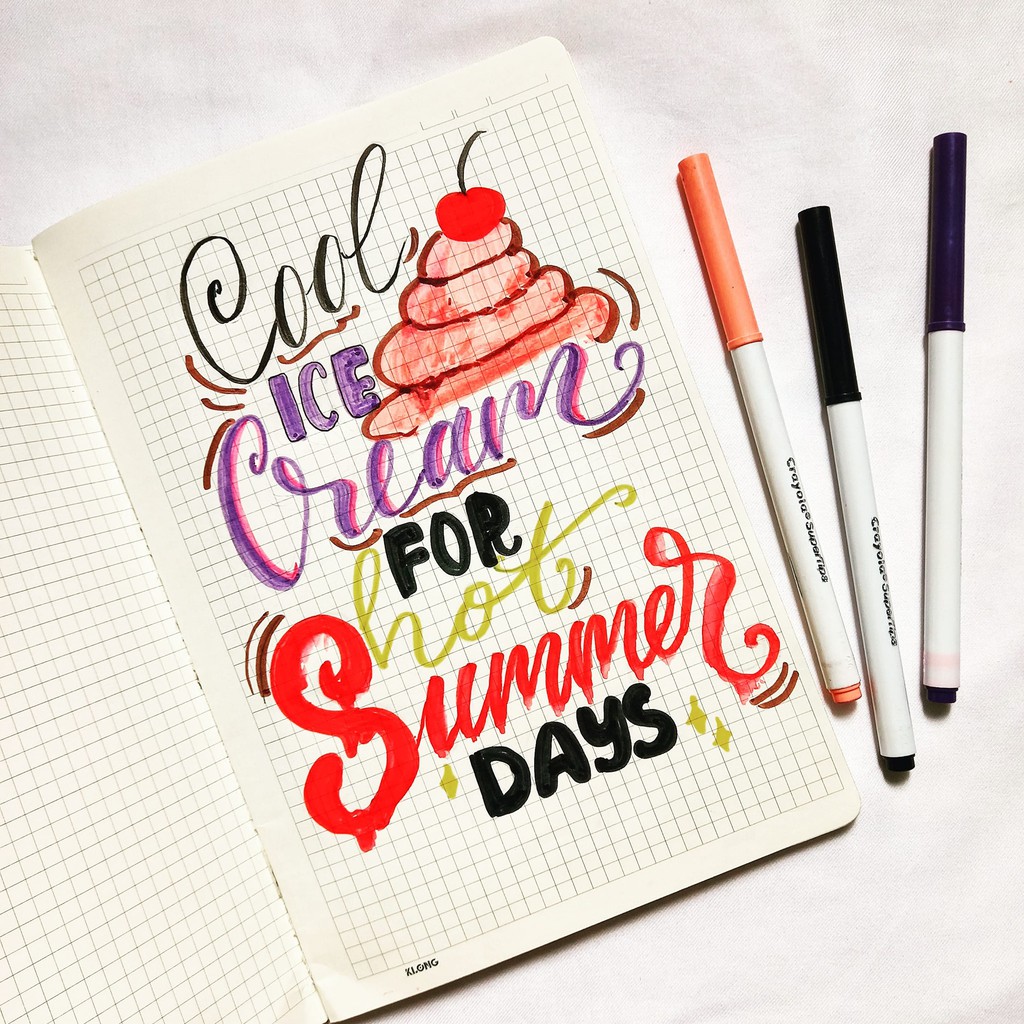 Cool
ICE
Cream
FOR
hot
Summer
DAYS
KLONG
Crayola SuperTips
Crayola SuperTips